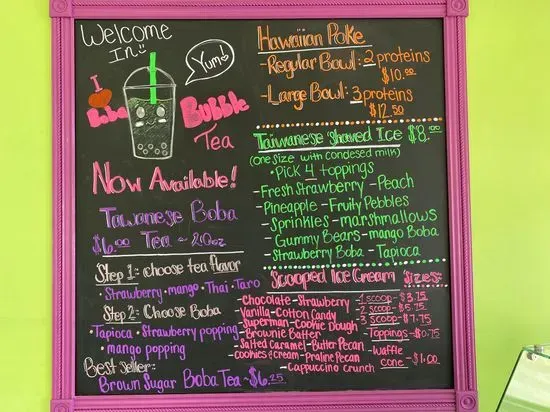 Welcome
In:)
Yum!
I
Boba
Bubble
Tea
Now Available!
Taiwanese Boba
$6.00 Tea ~ 20oz
Step 1: choose tea flavor
• Strawberry • mango • Thai • Taro
Step 2: Choose Boba
• Tapioca • Strawberry popping
• mango popping
Best Seller:
Brown Sugar Boba Tea ~ $6.25
Hawaiian Poke
- Regular Bowl: 2 proteins
$10.00
- Large Bowl: 3 proteins
$12.50
Taiwanese Shaved Ice $8.00
(one size with condesed milk)
• Pick 4 toppings
- Fresh Strawberry - Peach
- Pineapple - Fruity Pebbles
- Sprinkles - marshmallows
- Gummy Bears - mango Boba
- Strawberry Boba - Tapioca
Scooped Ice Cream Sizes:
- Chocolate - Strawberry
- Vanilla - Cotton Candy
- Superman - Cookie Dough
- Brownie Batter
- Salted Caramel - Butter Pecan
- cookies & cream - Praline Pecan
- Cappuccino crunch
- 1 scoop - $3.75
- 2 scoop - $5.75
- 3 scoop - $7.75
- Toppings - $0.75
- Waffle
cone - $1.00